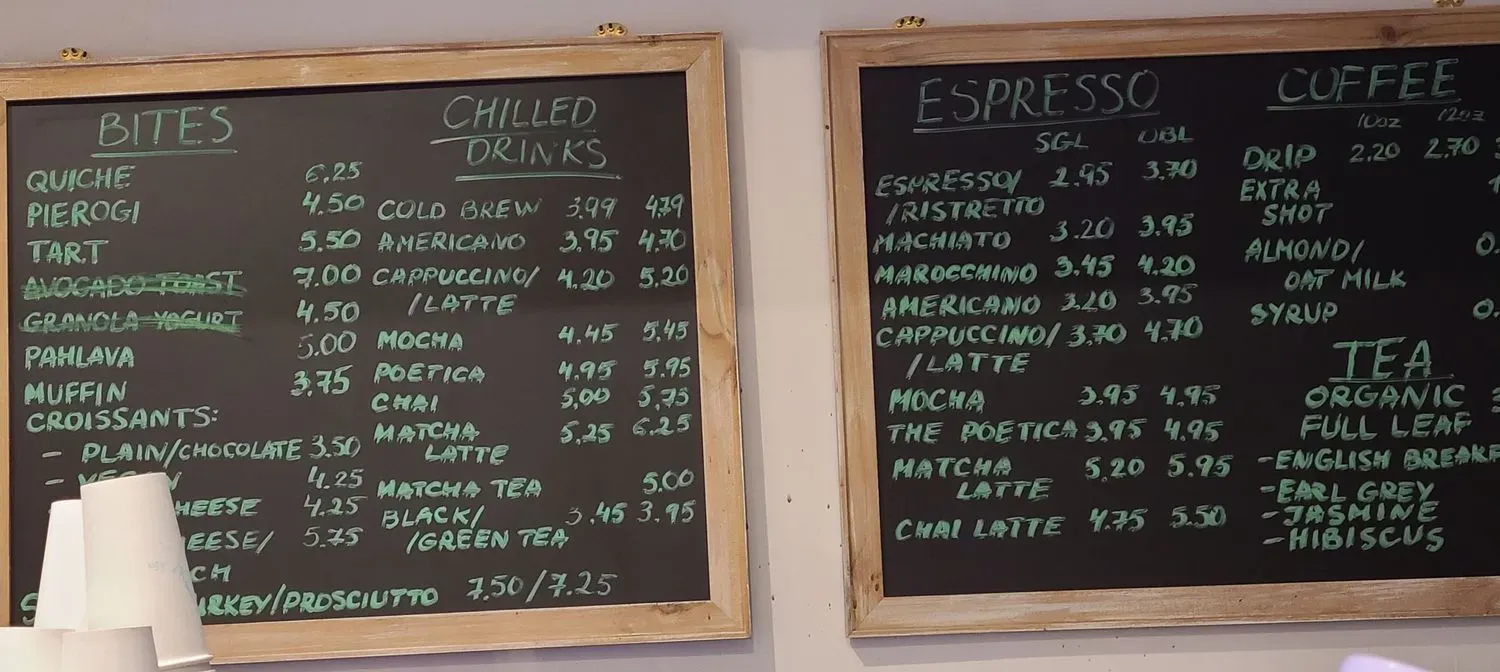 BITES
QUICHE 6.25
PIEROGI 4.50
TART 5.50
AVOCADO TOAST 7.00
GRANOLA YOGURT 4.50
PAHLAVA 5.00
MUFFIN 3.75
CROISSANTS:
- PLAIN/CHOCOLATE 3.50
- 4.25
HEESE 4.25
EESE/ 5.75
CH
RKEY/PROSCIUTTO 7.50/7.25
CHILLED
DRINKS
COLD BREW 3.99 4.79
AMERICANO 3.95 4.70
CAPPUCCINO/ 4.20 5.20
/LATTE
MOCHA 4.45 5.45
POETICA 4.95 5.95
CHAI 5.00 5.75
MATCHA 5.25 6.25
LATTE
MATCHA TEA 5.00
BLACK/ 3.45 3.95
/GREEN TEA
ESPRESSO
SGL DBL
ESPRESSO/ 2.95 3.70
/RISTRETTO
MACHIATO 3.20 3.95
MAROCCHINO 3.45 4.20
AMERICANO 3.20 3.95
CAPPUCCINO/ 3.70 4.70
/LATTE
MOCHA 3.95 4.95
THE POETICA 3.95 4.95
MATCHA 5.20 5.95
LATTE
CHAI LATTE 4.75 5.50
COFFEE
10oz 12oz
DRIP 2.20 2.70
EXTRA
SHOT
ALMOND/ 0.
OAT MILK
SYRUP 0.
TEA
ORGANIC
FULL LEAF
-ENGLISH BREAKF
-EARL GREY
-JASMINE
-HIBISCUS